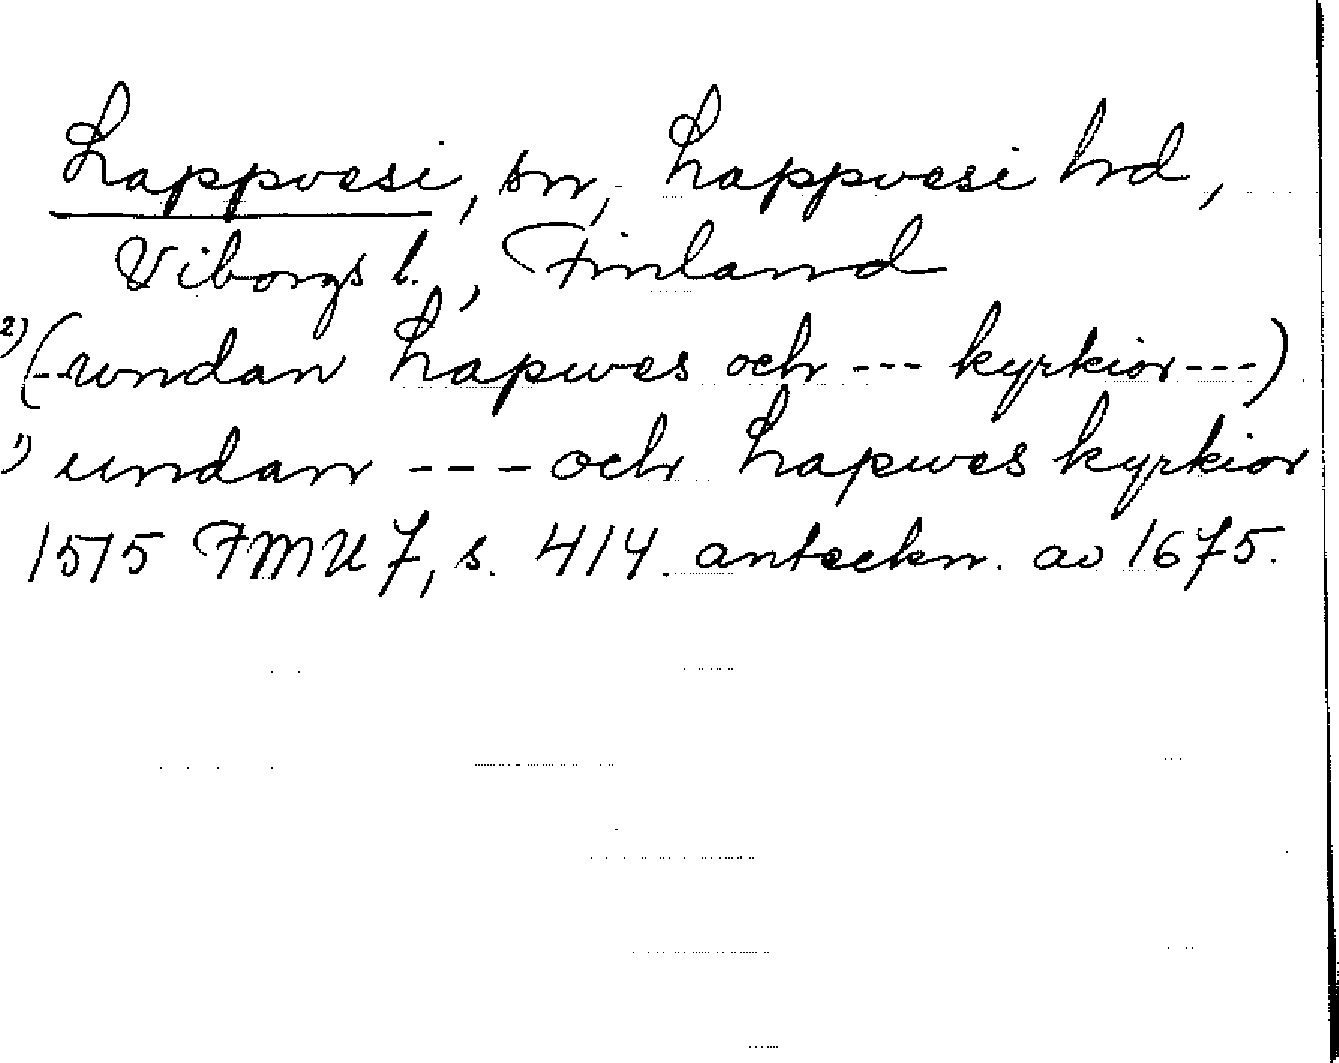 Lappvesi, sn, Lappvesi hd,
Viborgs l., Finland
2) (--undan Lapwes och --- kyrkior---)
1) undan --- och Lapwes kyrkior
1515 FMU 7, s. 414. anteckn. av 1675.